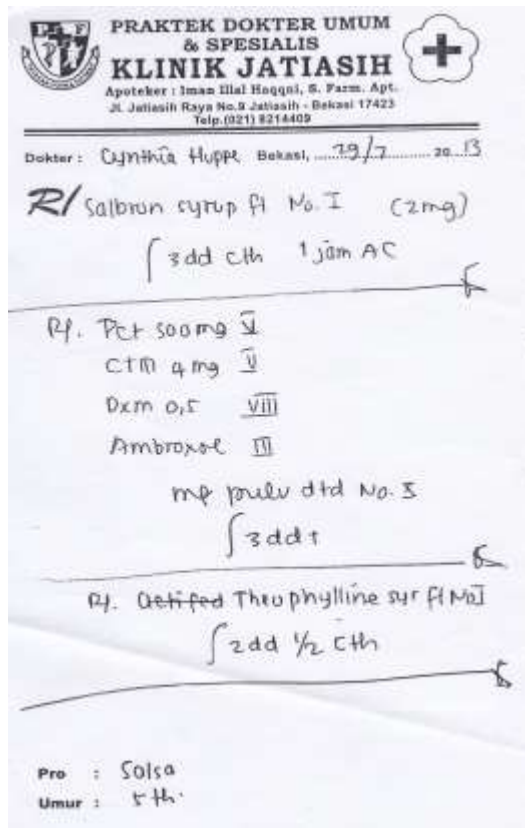 PRAKTEK DOKTER UMUM
& SPESIALIS
KLINIK JATIASIH
Apoteker : Iman Illal Haqqni, S. Farm. Apt.
Jl. Jatiasih Raya No.9 Jatiasih - Bekasi 17423
Telp.(021) 8214409
Dokter : Cynthia Huppe Bekasi, 29/7 20 13
R/ Salbron syrup fl No. I (2mg)
∫ 3 dd cth 1 jam AC
R/. Pct 500 mg V
CTM 4 mg V
Dxm 0,5 VIII
Ambroxol III
mf pulv dtd No. X
∫ 3 dd 1
R/. Actifed Theophylline syr fl No I
∫ 2 dd 1/2 Cth
Pro : Solsa
Umur : 5 th.